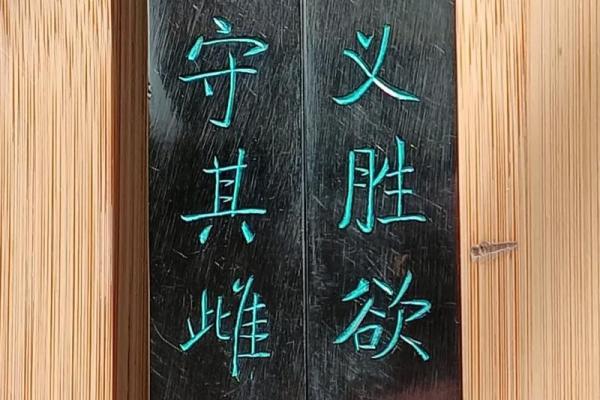 义胜欲
守其雌